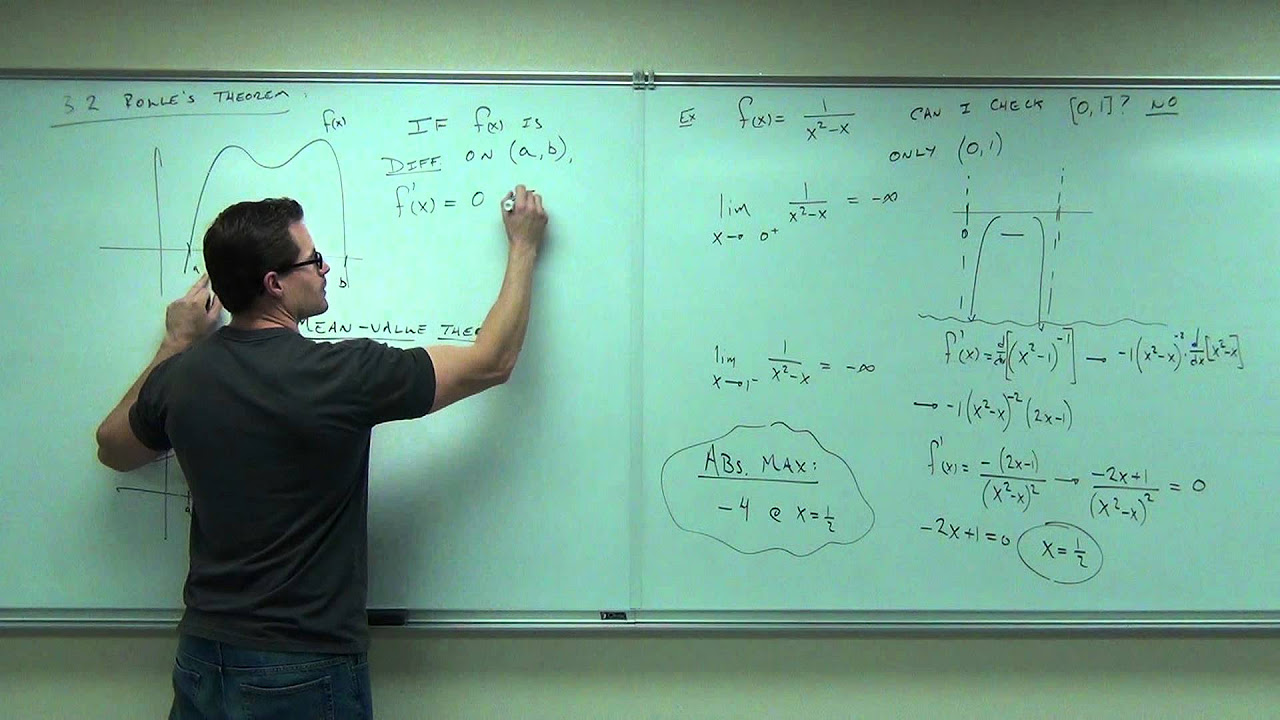 3.2 ROLLE'S THEOREM.
f(x)
a
b
IF f(x) IS
DIFF ON (a,b),
f'(x) = 0
MEAN-VALUE
Ex f(x) = 1/(x²-x) CAN I CHECK [0,1]? NO
ONLY (0,1)
lim x→0⁺ 1/(x²-x) = -∞
0 1
lim x→1⁻ 1/(x²-x) = -∞
f'(x) = d/dx[(x²-1)⁻¹] → -1(x²-x)⁻²·d/dx[x²-x]
→ -1(x²-x)⁻²(2x-1)
f'(x) = -(2x-1)/(x²-x)² → (-2x+1)/(x²-x)² = 0
-2x+1=0 x=1/2
ABS. MAX:
-4 @ x=1/2